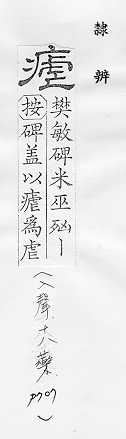 隸辨
瘧
樊敏碑米巫丨
按碑盖以瘧爲虐
(入聲十八藥)